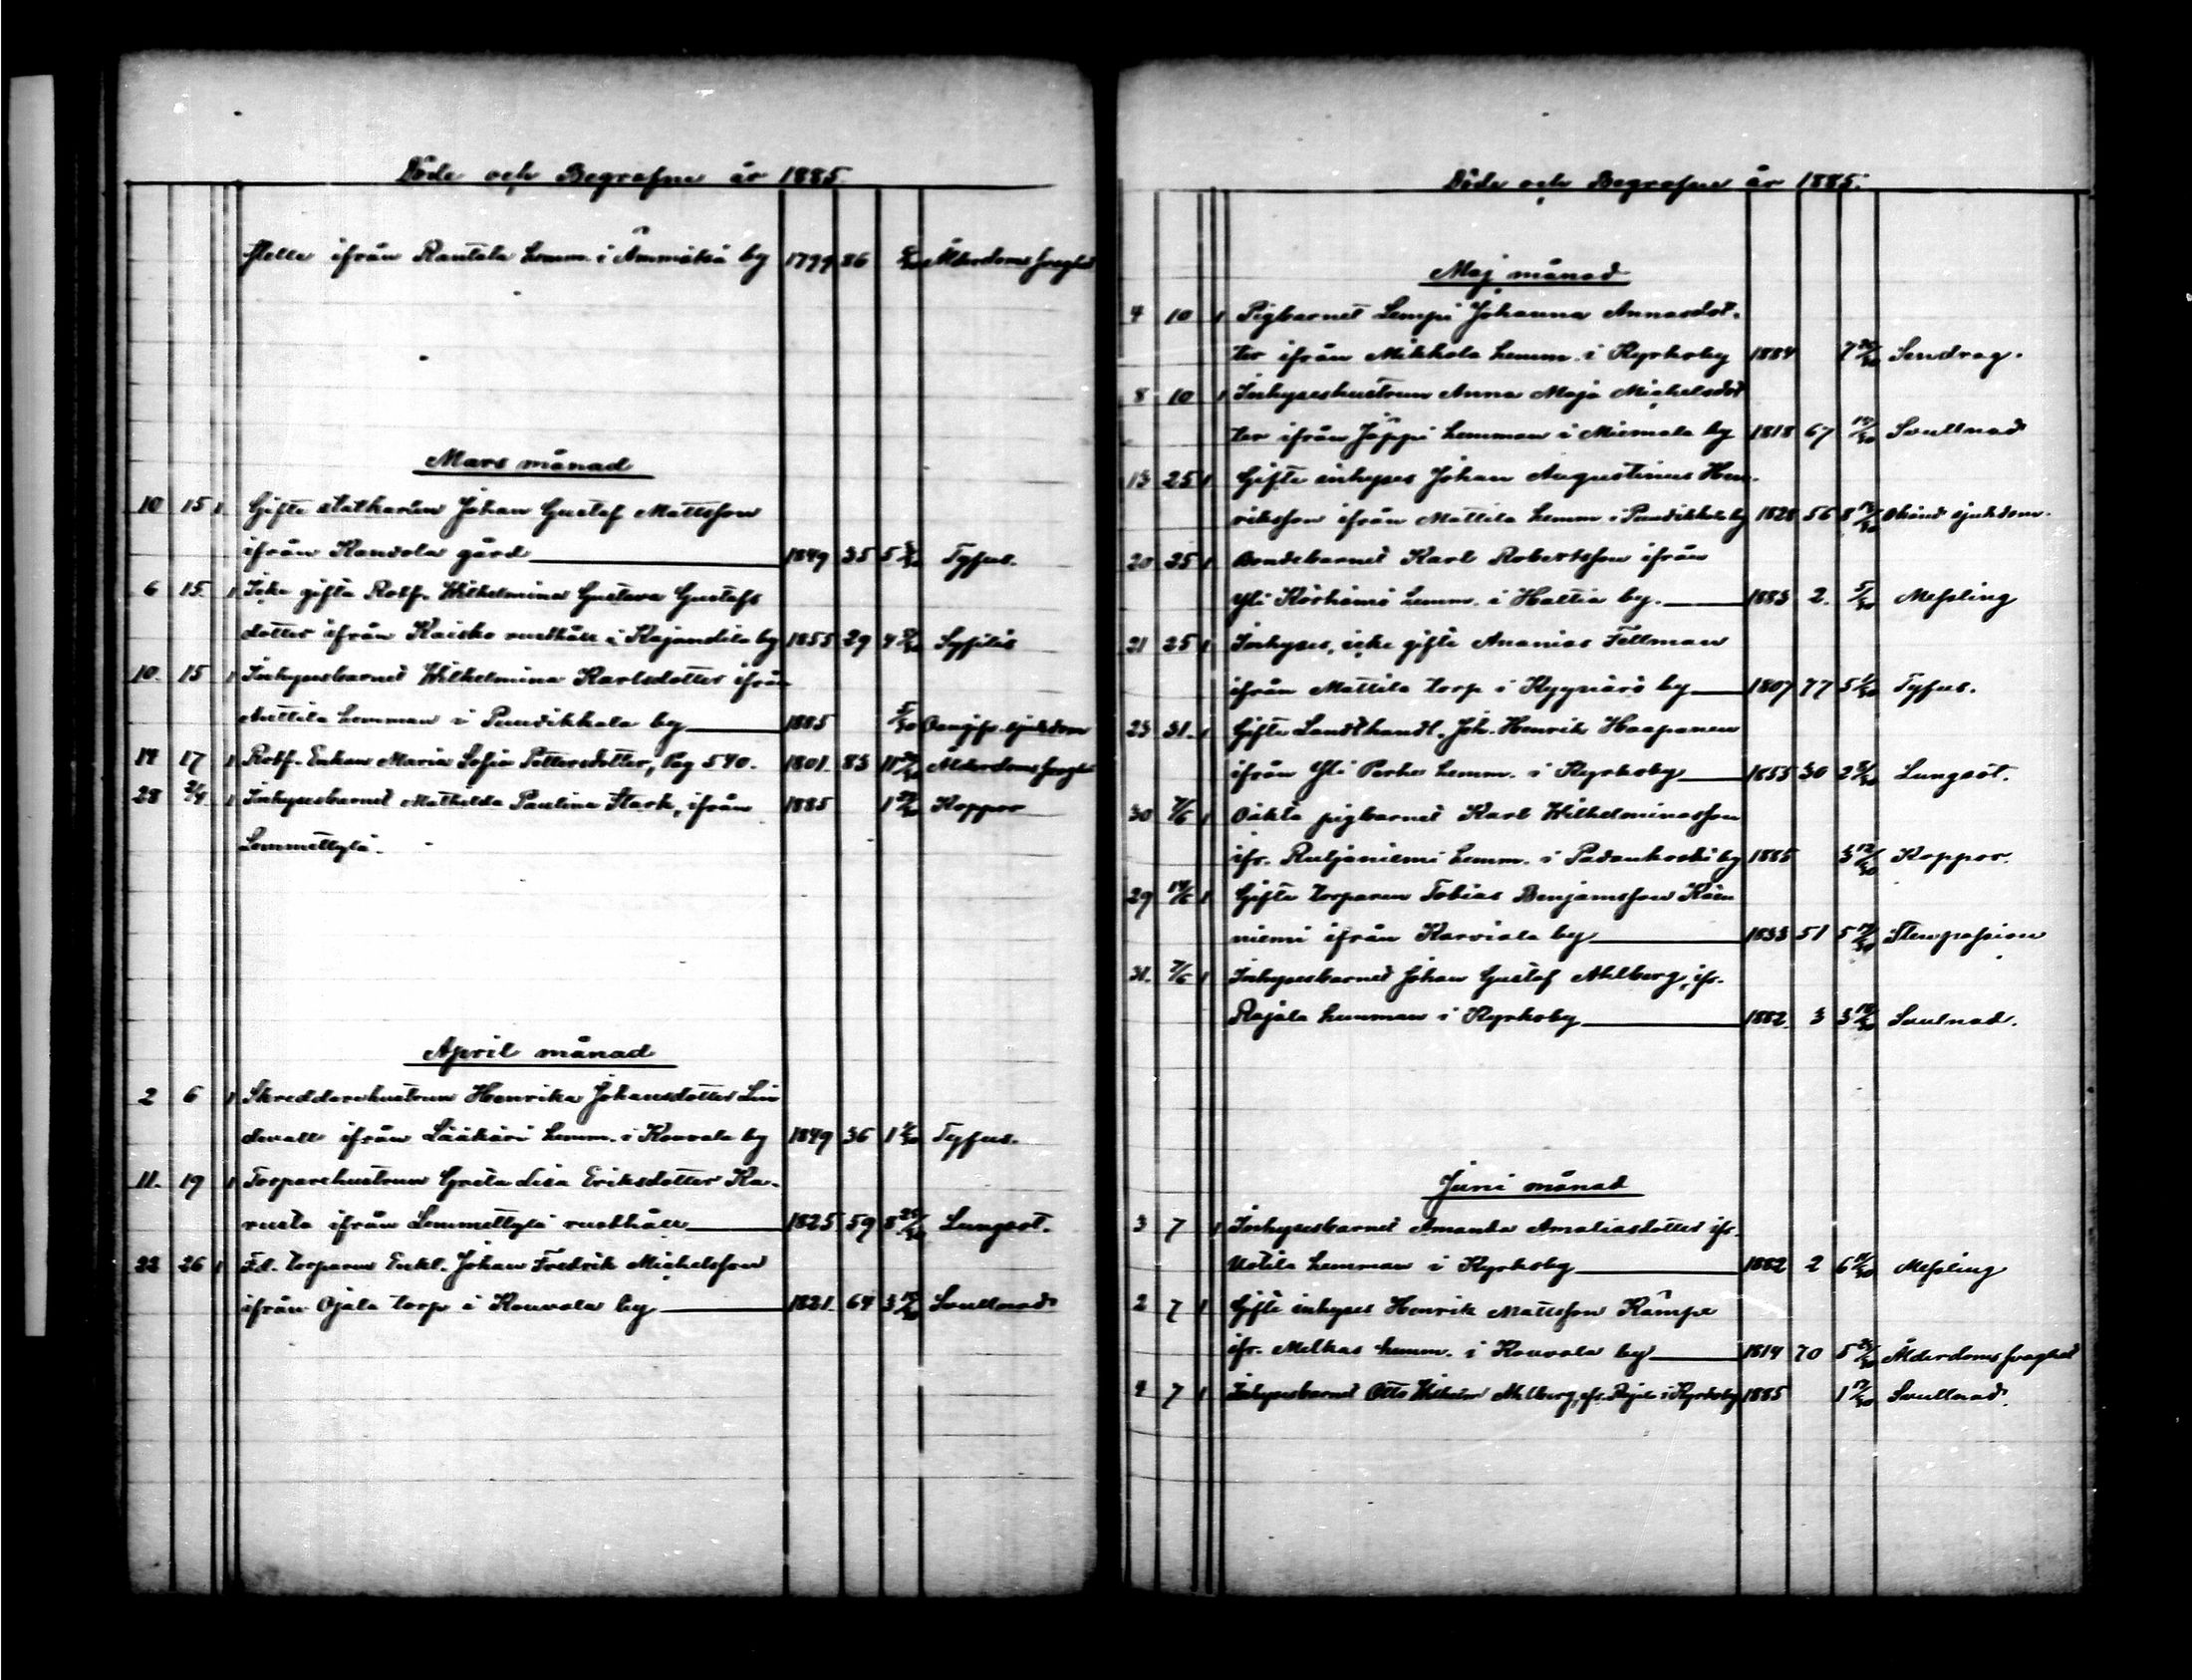 Döde och Begrafne år 1885.
Helle ifrån Rantala hemm. i Ämmätsä by 1799 86 Ålderdomssvaghet
Mars månad
10 15 1 Gifte statkarlen Johan Gustaf Mattsson
ifrån Kandola gård 1849 35 5 Tyfus.
6 15 1 Icke gifta Rotf. Wilhelmina Gustava Gustafs
dotter ifrån Kaisko rusthåll i Kajandila by 1855 29 4 Syfilis
10. 15 1 Inhysesbarnet Wilhelmina Karlsdotter ifrån
Mattila hemman i Puudikkala by 1885 5/30 Oangif. sjukdom
14 17 1 Rotf. Enkan Maria Sofia Pettersdotter, Pag 540. 1801. 83 11 Ålderdomssvaghet
28 2/4 1 Inhysesbarnet Mathilda Paulina Stark, ifrån 1885 1 Koppor
Lemmettylä.
April månad
2 6 1 Skreddarehustrun Henrika Johansdotter Lin
dewall ifrån Lääkäri hemm. i Kouvala by 1849 36 1 Tyfus.
11. 19 1 Torparehustrun Greta Lisa Eriksdotter Ka-
rusta ifrån Lemmettylä rusthåll 1825 59 8 Lungsot.
22 26 1 F.d. torparen Enkl. Johan Fredrik Michelsson
ifrån Ojala torp i Kouvola by 1821. 64 3 Svullnad
Döde och Begrafne år 1885.
Maj månad
4 10 1 Pigbarnet Lempi Johanna Annasdot-
ter ifrån Mikkola hemm. i Kyrkoby 1884 7 Sendrag.
8 10 1 Inhyseshustrun Anna Maja Michelsdot
ter ifrån Jäppi hemman i Miemala by 1818 67 Svullnad
13 25 1 Gifte inhyses Johan Augustinus Hen-
riksson ifrån Mattila hemm. i Puudikkala by 1828 56 8 Okänd sjukdom.
20 25 1 Bondebarnet Karl Robertsson ifrån
Yli Körhämö hemm. i Haltia by. 1883 2. 5/30 Messling
21 25 1 Inhyses, icke gifte Ananias Fellman
ifrån Mattila torp i by 1807 77 5 Tyfus.
23 31. 1 Gifte Landthandl. Joh. Henrik Haapanen
ifrån Yli Perho hemm. i Kyrkoby 1855 30 2 Lungsot.
30 7/6 1 Oäkta pigbarnet Karl Wilhelminasson
ifr. Ruljaniemi hemm. i Padankoski by 1885 3 Koppor.
29 14/6 1 Gifte torparen Tobias Benjamsson Käen
niemi ifrån Karviala by 1833 51 5 Stenpassion
31. 7/6 1 Inhysesbarnet Johan Gustaf Ahlberg, ifr.
Rajala hemman i Kyrkoby 1882. 3 3 Svulnad.
Juni månad
3 7 1 Inhysesbarnet Amanda Amaliasdotter ifr.
Uotila hemman i Kyrkoby 1882 2 6 Messling
2 7 1 Gifte inhyses Henrik Mattsson Kämpe
ifr. Melkas hemm. i Kouvola by 1814 70 5 Ålderdomssvaghet
4 7 1 Inhysesbarnet Otto Wilhelm Ahlberg, ifr. Rajala i Kyrkoby 1885 1 Svullnad.